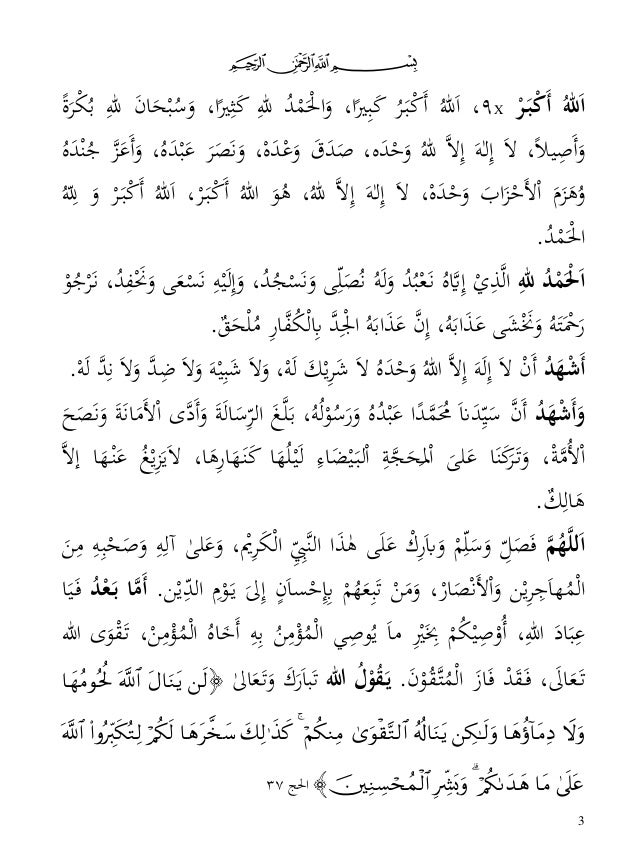 بِسْمِ ٱللَّهِ ٱلرَّحْمَٰنِ ٱلرَّحِيمِ
اَللهُ أَكْبَرْ ٩x، اَللهُ أَكْبَرُ كَبِيرًا، وَالْحَمْدُ لِلهِ كَثِيرًا، وَسُبْحَانَ لِلهِ بُكْرَةً
وَأَصِيلاً، لاَ إِلٰهَ إِلاَّ للهُ وَحْدَه، صَدَقَ وَعْدَهْ، وَنَصَرَ عَبْدَهُ، وَأَعَزَّ جُنْدَهُ
وُهَزَمَ الْأَحْزَابَ وَحْدَهْ، لاَ إِلٰهَ إِلاَّ للهُ، هُوَ اللهُ أَكْبَرْ، اَللهُ أَكْبَرْ وَ لِلّٰهِ
الْحَمْدُ.
اَلْحَمْدُ لِلهِ الَّذِيْ إِيَّاهُ نَعْبُدُ وَلَهُ نُصَلِّى وَنَسْجُدُ، وَإِلَيْهِ نَسْعَى وَنَحْفِدُ، نَرْجُوْ
رَحْمَتَهُ وَنَخْشَى عَذَابَهُ، إِنَّ عَذَابَهُ الْجِدَّ بِالْكُفَّارِ مُلْحَقٌ.
أَشْهَدُ أَنْ لاَ إِلَهَ إِلاَّ اللهُ وَحْدَهُ لاَ شَرِيْكَ لَهْ، وَلاَ شَبِيْهَ وَلاَ ضِدَّ وَلاَ نِدَّ لَهْ.
وَأَشْهَدُ أَنَّ سَيِّدَناَ مُحَمَّدًا عَبْدُهُ وَرَسُوْلُهُ، بَلَّغَ الرِّسَالَةَ وَأَدَّى الْأَمَانَةَ وَنَصَحَ
الْأُمَّةْ، وَتَرَكَنَا عَلىَ الْمِحَجَّةِ الْبَيْضَاءِ لَيْلُهَا كَنَهَارِهَا، لاَيَزِيْغُ عَنْهَا إلاَّ
هَالِكٌ.
اَللَّهُمَّ فَصَلِّ وَسَلِّمْ وَباَرِكْ عَلَى هٰذَا النَّبِيِّ الْكَرِيْم، وَعَلىٰ آلِهِ وَصَحْبِهِ مِنَ
الْمُهاَجِرِيْن وَالْأَنْصَارْ، وَمَنْ تَبِعَهُمْ بِإِحْساَنٍ إِلىَ يَوْمِ الدِّيْن. أَمَّا بَعْدُ فَيَا
عِبَادَ اللهِ، أُوْصِيْكُمْ بِخَيْرِ ماَ يُوصِي الْمُؤْمِنُ بِهِ أَخَاهُ الْمُؤْمِنْ، تَقْوَى الله
تَعَالَى، فَقَدْ فَازَ الْمُتَّقُوْنَ. يَقُوْلُ الله تَباَرَكَ وَتَعَالىٰ ﴿لَن يَنَالَ ٱللَّهَ لُحُومُهَا
وَلَا دِمَآؤُهَا وَلَٰكِن يَنَالُهُ ٱلتَّقْوَىٰ مِنكُمْ ۚ كَذَٰلِكَ سَخَّرَهَا لَكُمْ لِتُكَبِّرُوا۟ ٱللَّهَ
عَلَىٰ مَا هَدَىٰكُمْ ۗ وَبَشِّرِ ٱلْمُحْسِنِينَ﴾ الحج ٣٧
3